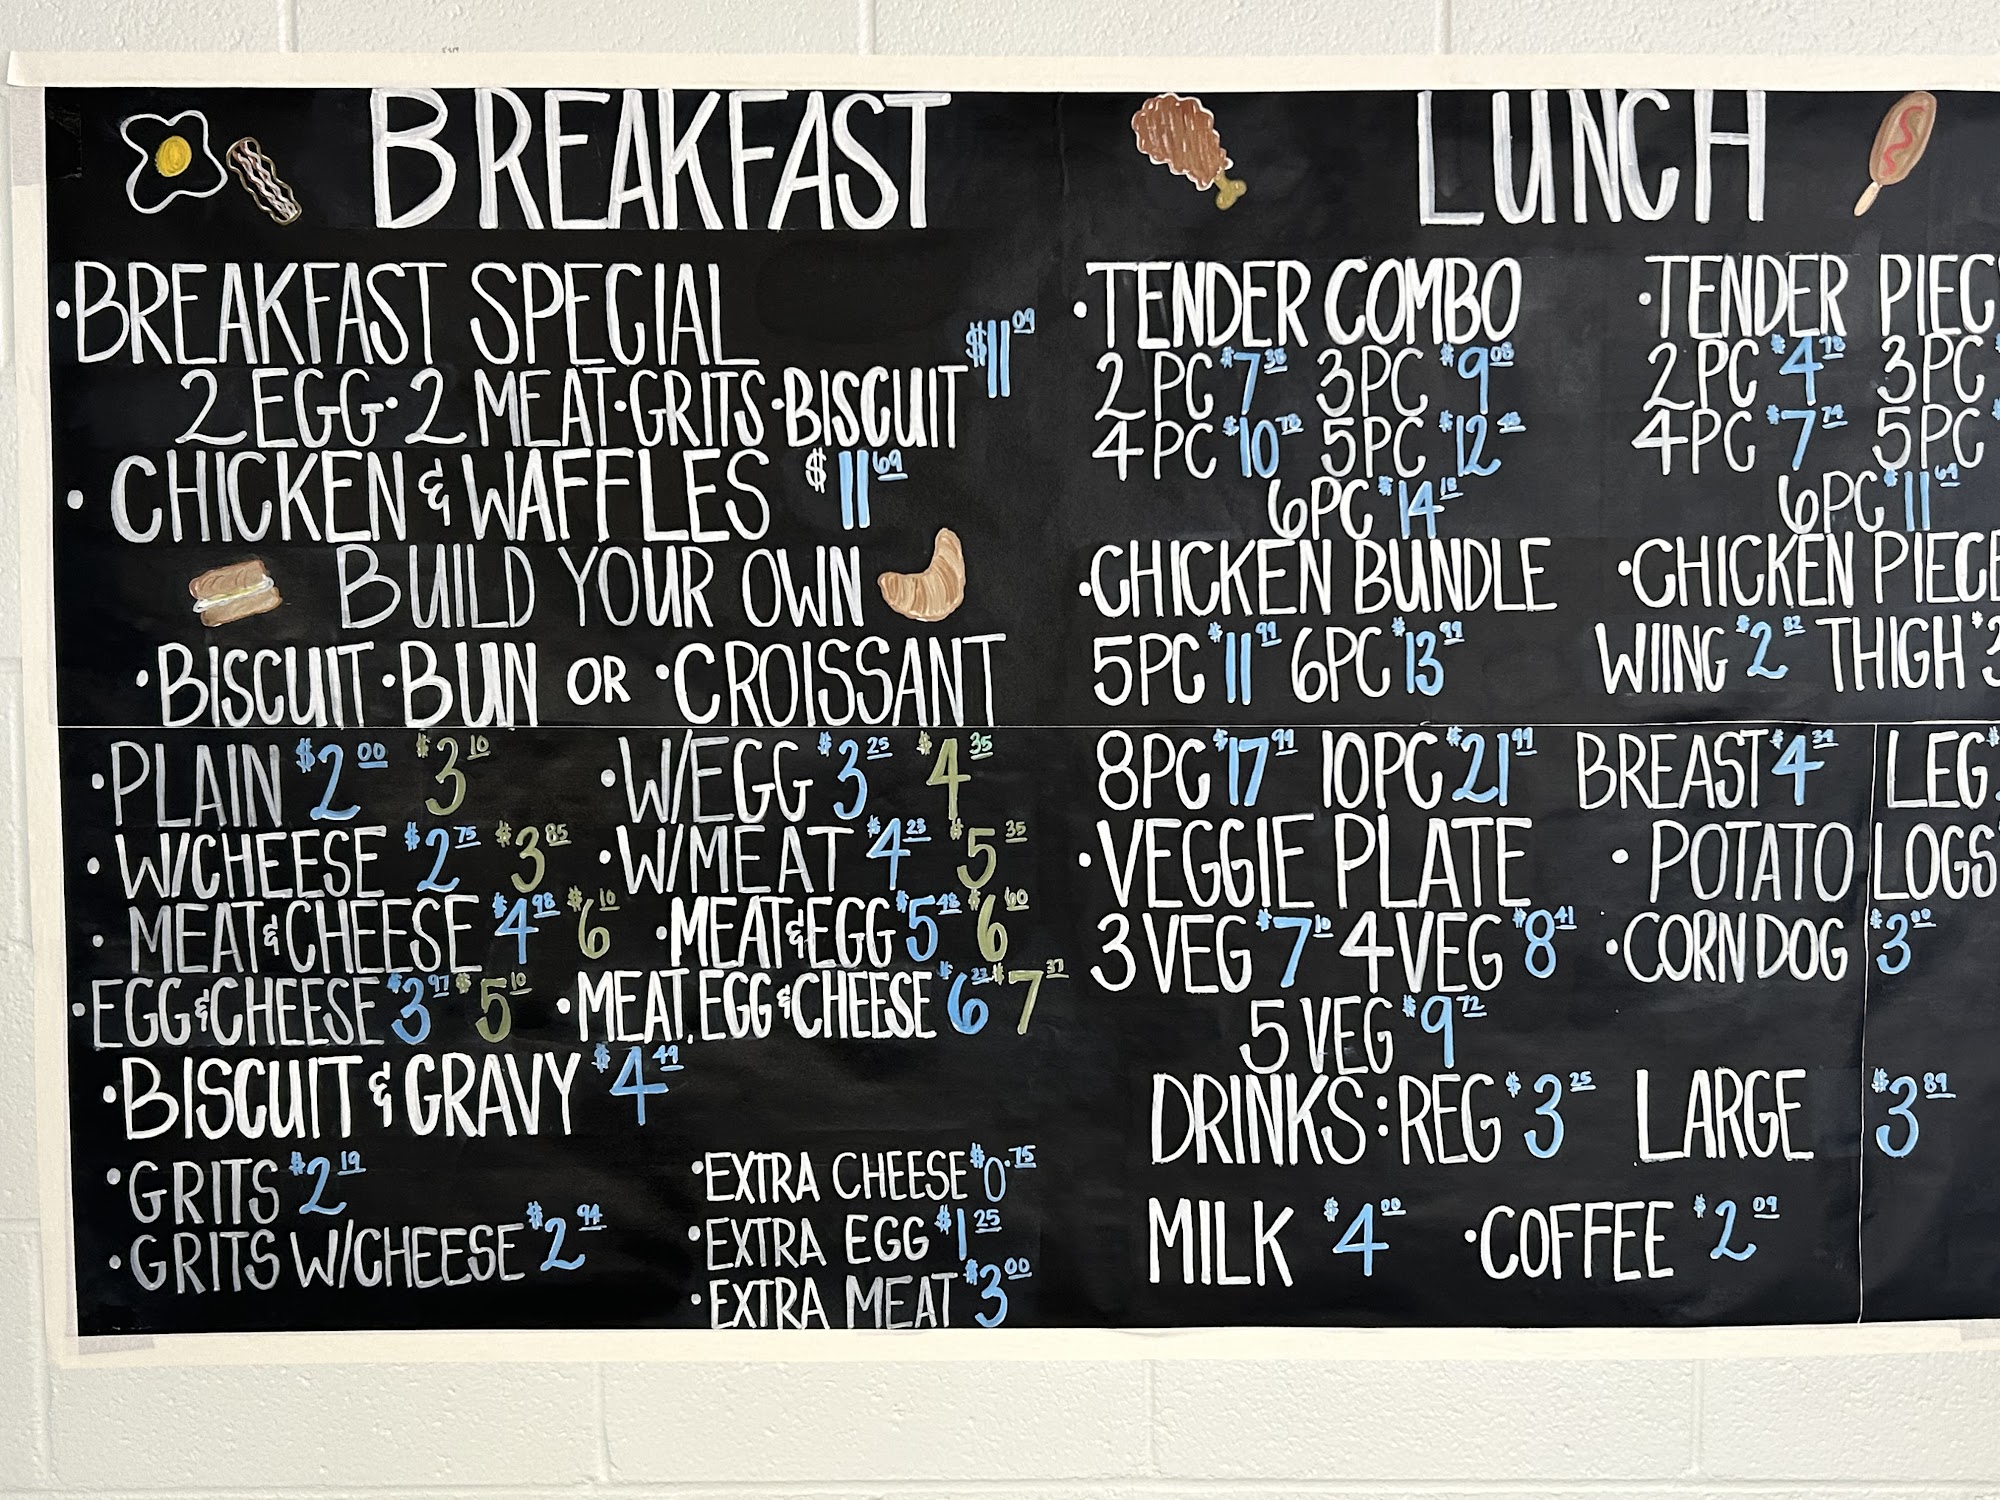 BREAKFAST
•BREAKFAST SPECIAL $11.09
2 EGG•2 MEAT•GRITS•BISCUIT
•CHICKEN & WAFFLES $11.69
BUILD YOUR OWN
•BISCUIT •BUN OR •CROISSANT
•PLAIN $2.00 $3.10 •W/EGG $3.25 $4.35
•W/CHEESE $2.75 $3.85 •W/MEAT $4.23 $5.35
•MEAT&CHEESE $4.98 $6.10 •MEAT&EGG $5.48 $6.60
•EGG&CHEESE $3.97 $5.10 •MEAT, EGG &CHEESE $6.23 $7.37
•BISCUIT & GRAVY $4.49
•GRITS $2.19
•GRITS W/CHEESE $2.94
•EXTRA CHEESE $0.75
•EXTRA EGG $1.25
•EXTRA MEAT $3.00
LUNCH
•TENDER COMBO
2 PC $7.38 3PC $9.08
4 PC $10.78 5PC $12.48
6PC $14.18
•CHICKEN BUNDLE
5PC $11.99 6PC $13.99
8PC $17.99 10PC $21.99
•VEGGIE PLATE
3 VEG $7.10 4 VEG $8.41
5 VEG $9.72
•TENDER
2PC $4.78 3PC
4PC $7.74 5PC
6PC $11.69
•CHICKEN
WIING $2.82 THIGH
BREAST $4.34 LEG
•POTATO LOGS
•CORN DOG $3.00
DRINKS: REG $3.25 LARGE $3.89
MILK $4.00 •COFFEE $2.09